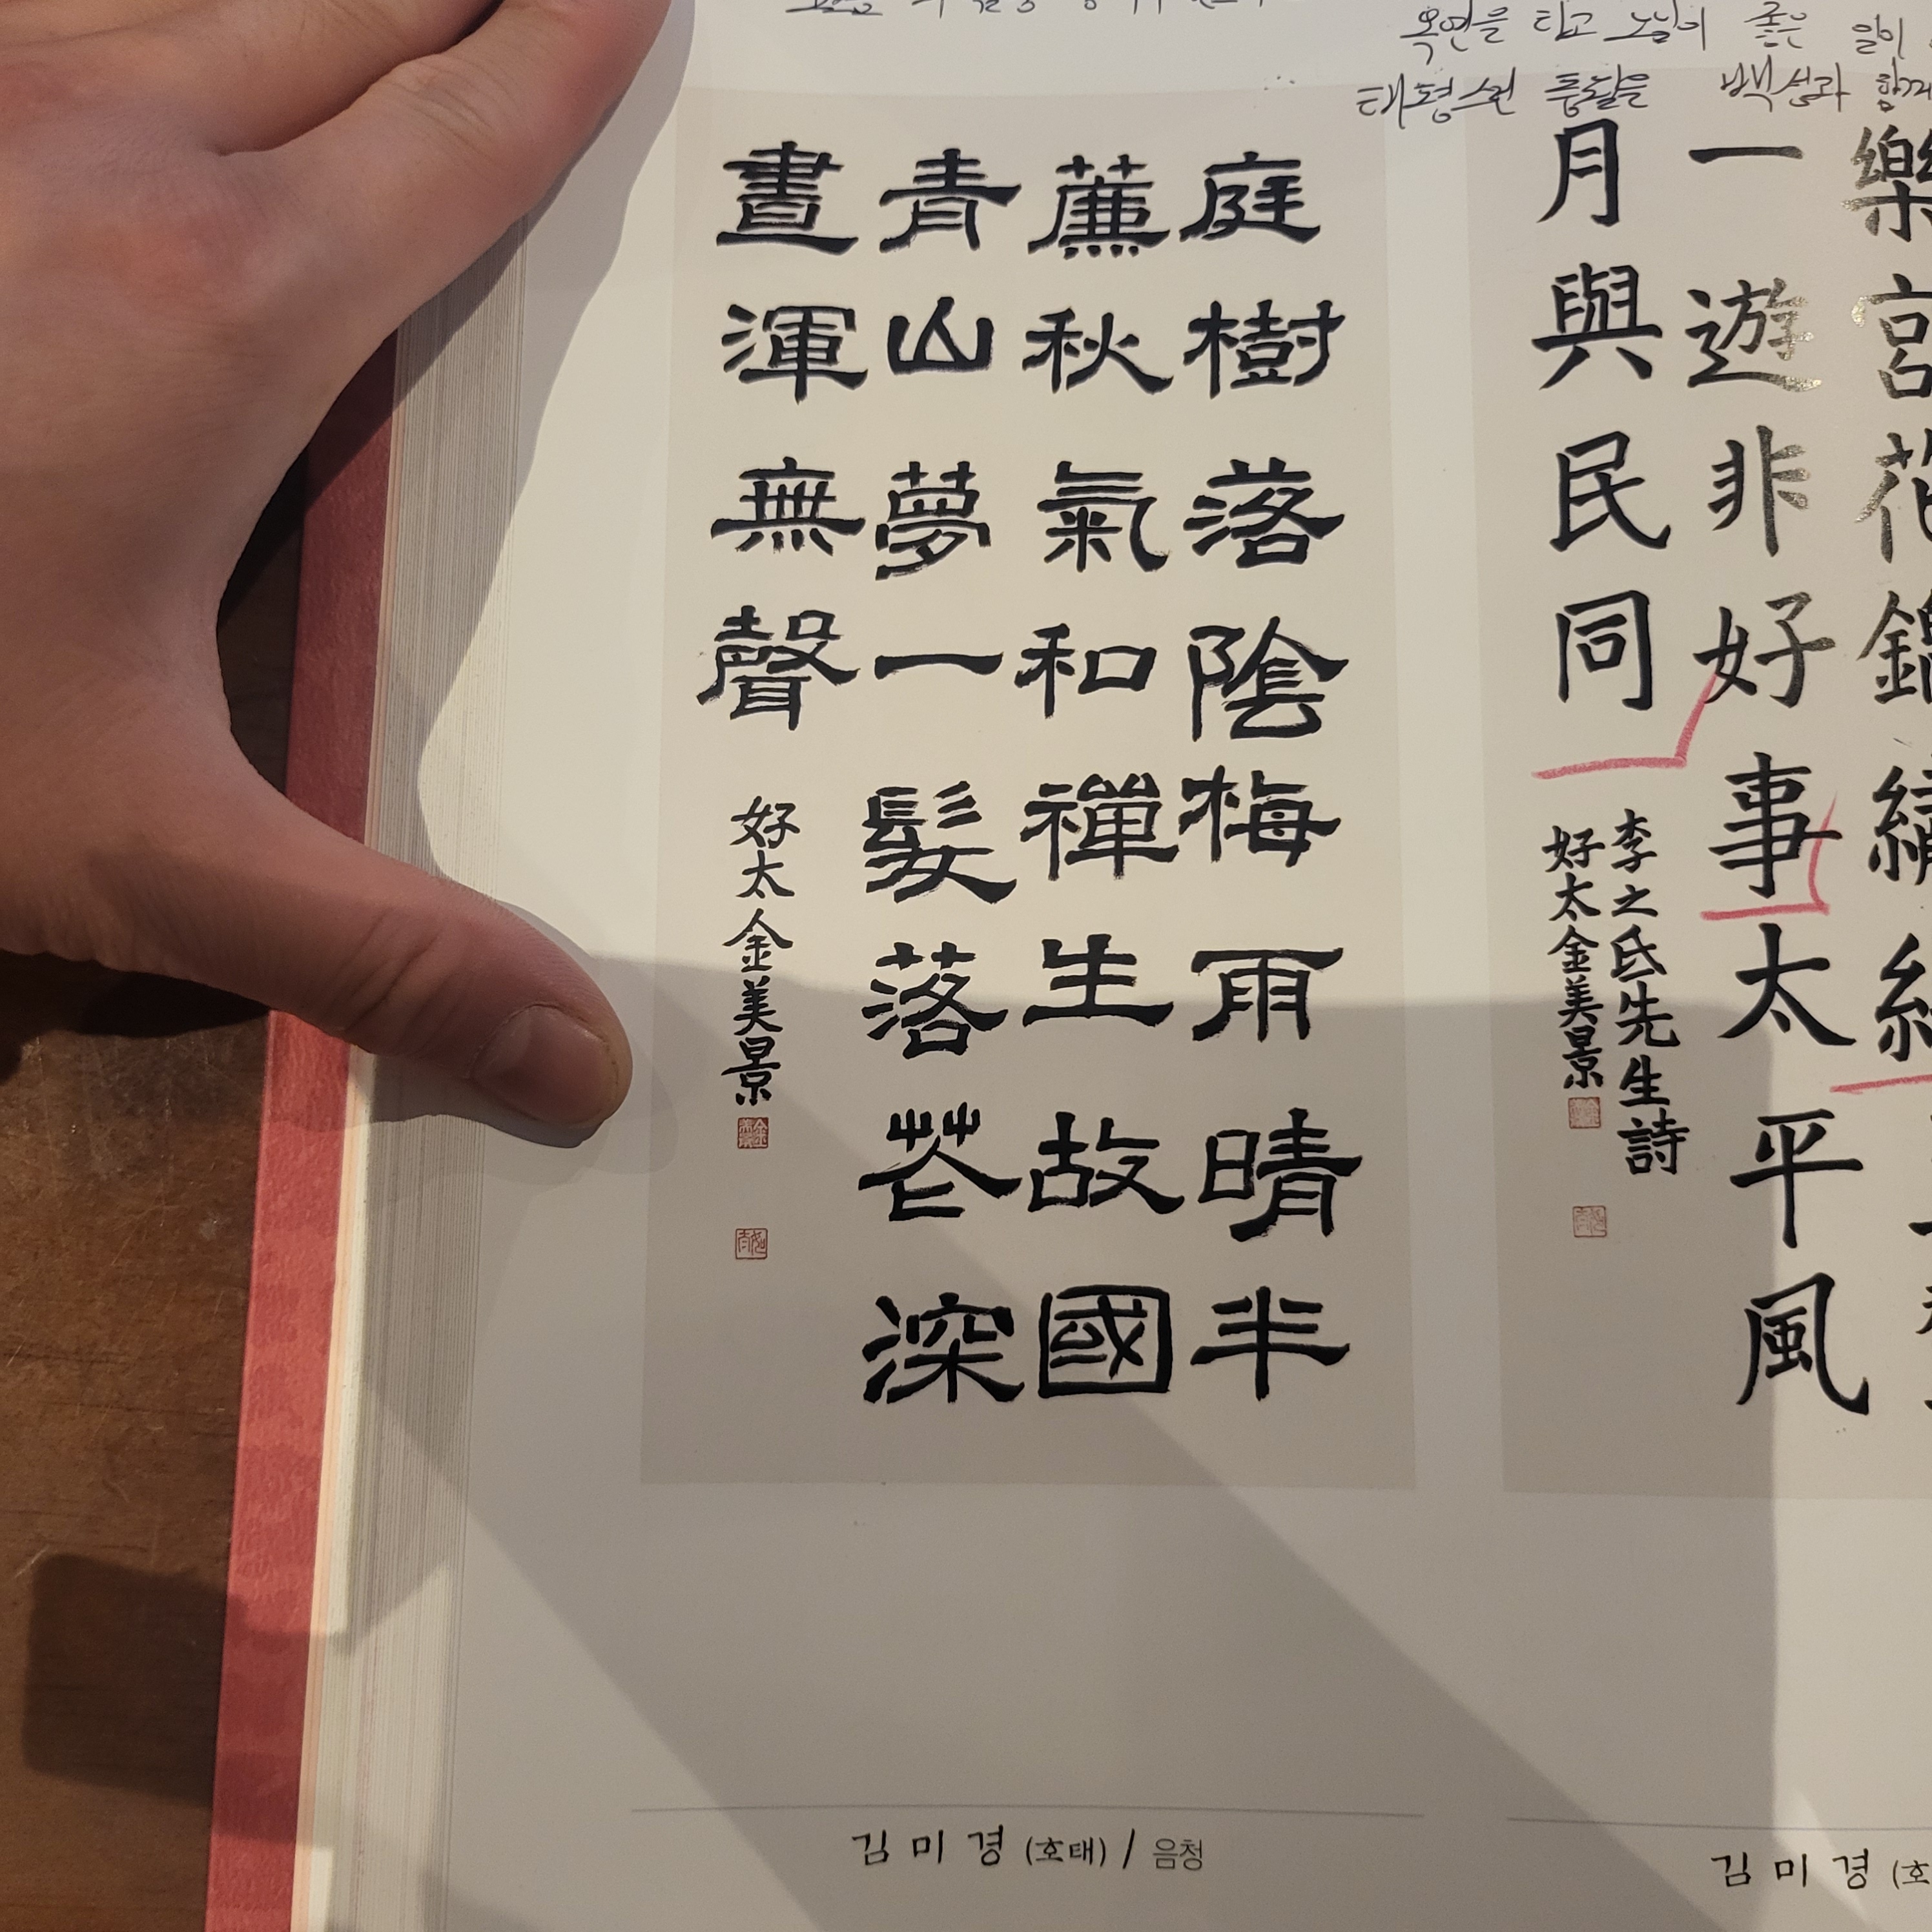 옥연을 타고 노닒이 좋은 일이
태평스런 풍월을 백성과 함께
樂宮花錦繡
一遊非好事太平風
月與民同
李之氐先生詩
好太金美景
庭樹落陰梅雨晴半
薕秋氣和禪生故國
青山夢一髮落花深
晝渾無聲
好太金美景
김미경 (호태) / 음청
김미경 (호